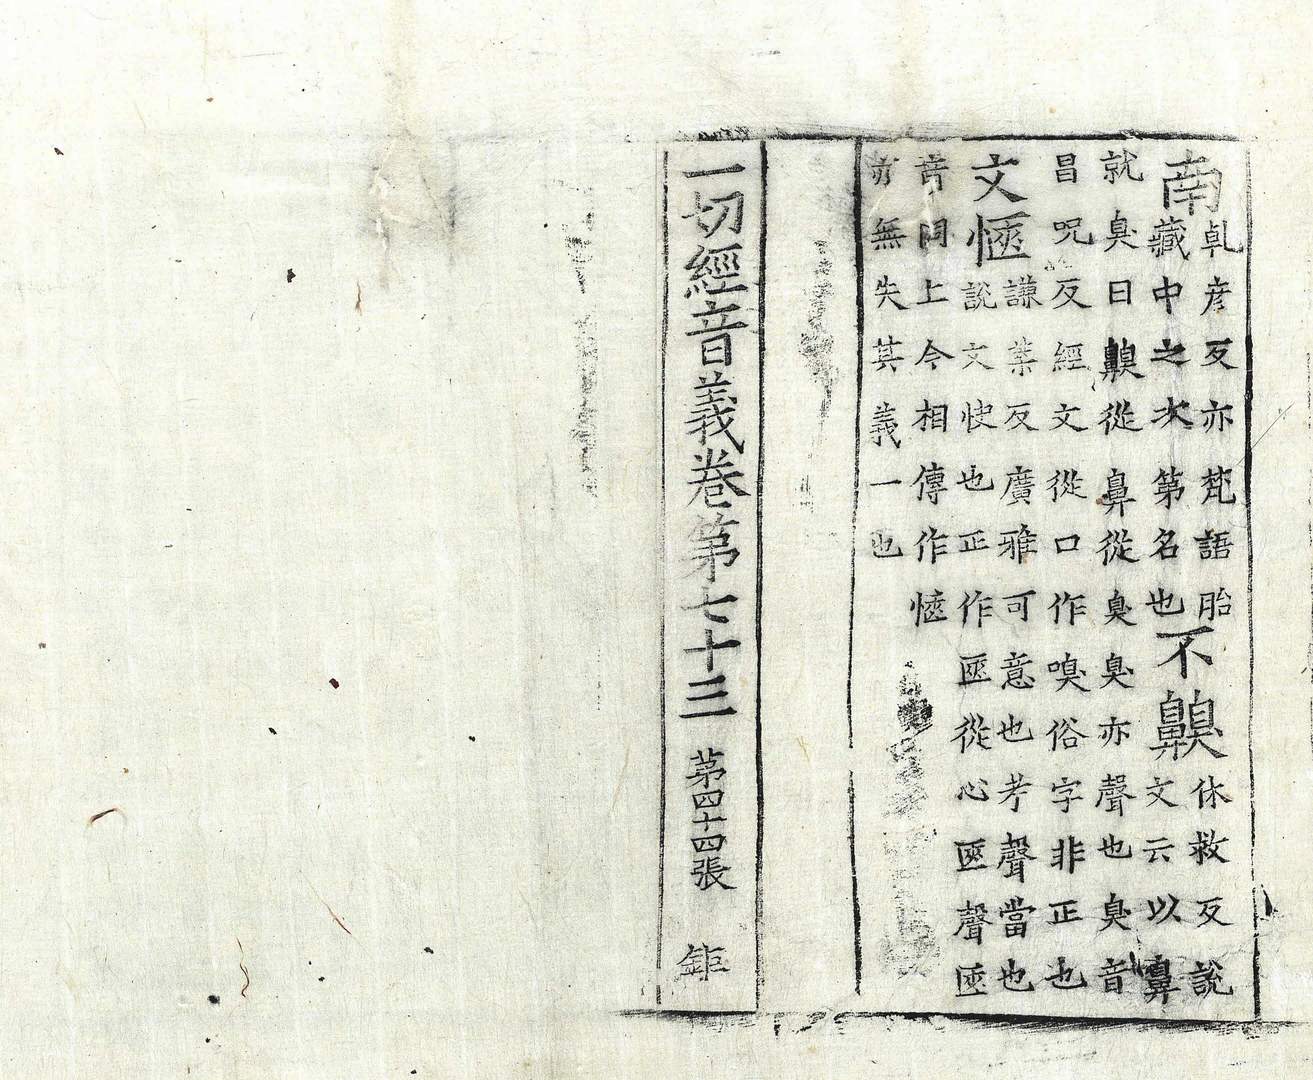 南
乹彦反亦梵語胎
藏中之次第名也
不齅
休救反說
文云以鼻
就臭曰齅從鼻從臭臭亦聲也臭音
昌呪反經文從口作嗅俗字非正也
文㥦
謙葉反廣雅可意也考聲當也
說文快也正作匧從心匧聲匧
音同上今相傳作㥦
无失其義一也
一切經音義卷第七十三 第四十四張 鉅